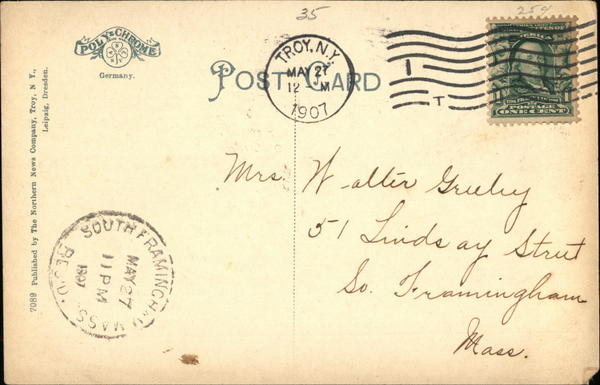 35
25¢
POLY-CHROME
Germany.
POST CARD
TROY, N.Y.
MAY 27
12 M
1907
1
T
POSTAGE
ONE CENT
7089 Published by The Northern News Company, Troy, N. Y.,
Leipzig, Dresden.
Mrs. Walter Greeley
51 Lindsay Street
So. Framingham
Mass.
SOUTH FRAMINGHAM MASS.
MAY 27
11 PM
1907
REC'D.